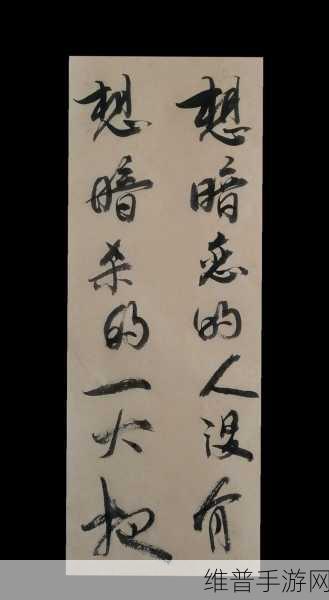 想暗恋的人没有
想暗杀的一大把
维普手游网